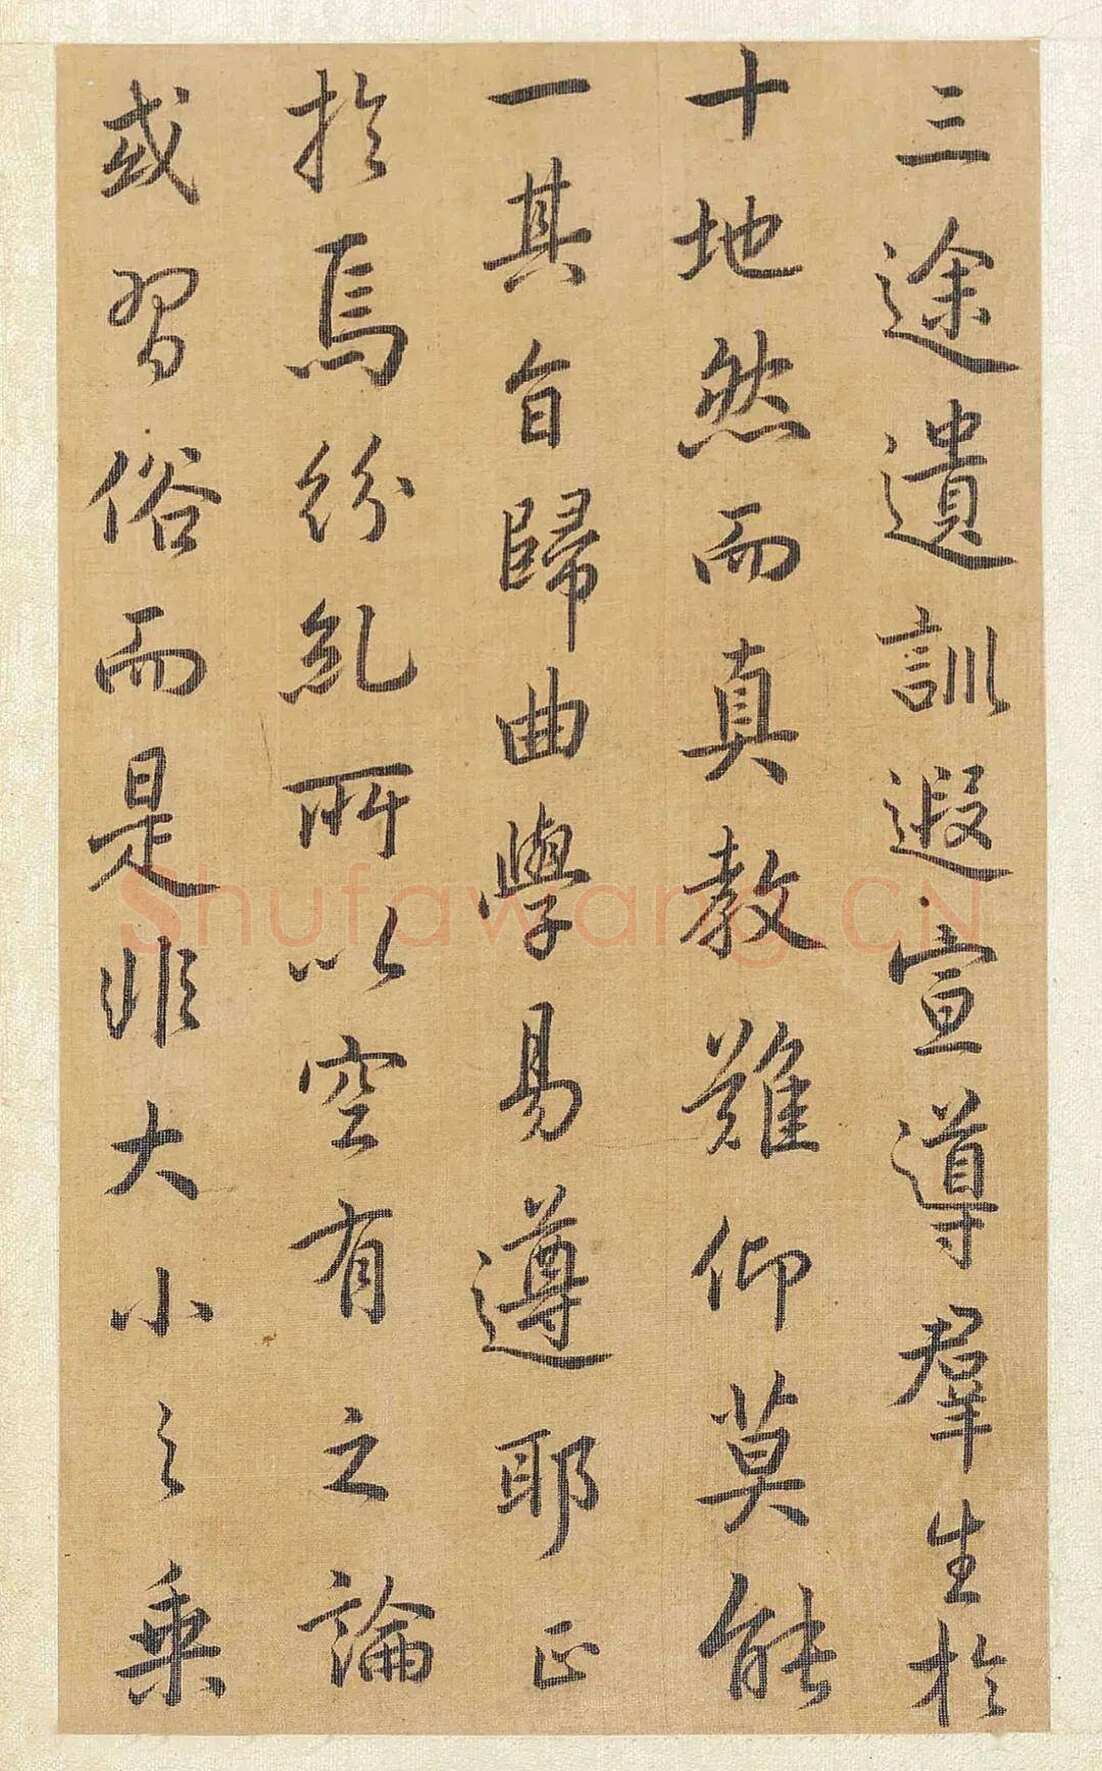 三途遺訓遐宣導羣生於
十地然而真教難仰莫能
一其旨歸曲學易遵耶正
於焉紛糺所以空有之論
或習俗而是非大小之乘
Shufawang.CN